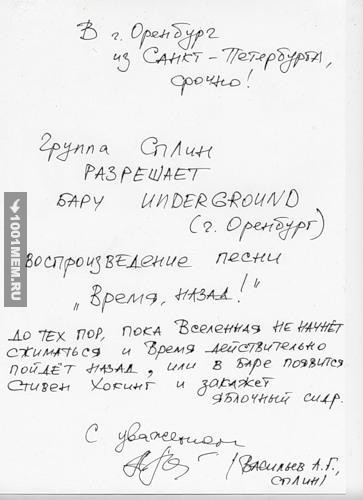 В г. Оренбург
из Санкт-Петербурга,
срочно!
Группа Сплин
РАЗРЕШАЕТ
БАРУ UNDERGROUND
(г. Оренбург)
ВОСПРОИЗВЕДЕНИЕ ПЕСНИ
„Время, назад!"
До тех пор, пока Вселенная не начнёт
сжиматься и время действительно
пойдёт назад, или в баре появится
Стивен Хокинг и закажет
яблочный сидр.
С уважением
(Васильев А.Г.,
СПЛИН)
1001MEM.RU